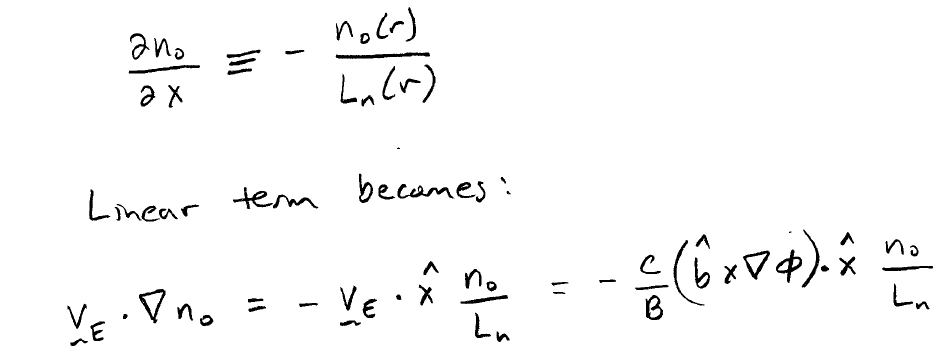 ∂n₀/∂x ≡ - n₀(r)/Lₙ(r)
Linear term becomes:
V_E · ∇n₀ = - V_E · x̂ n₀/Lₙ = - c/B (b̂ × ∇φ) · x̂ n₀/Lₙ